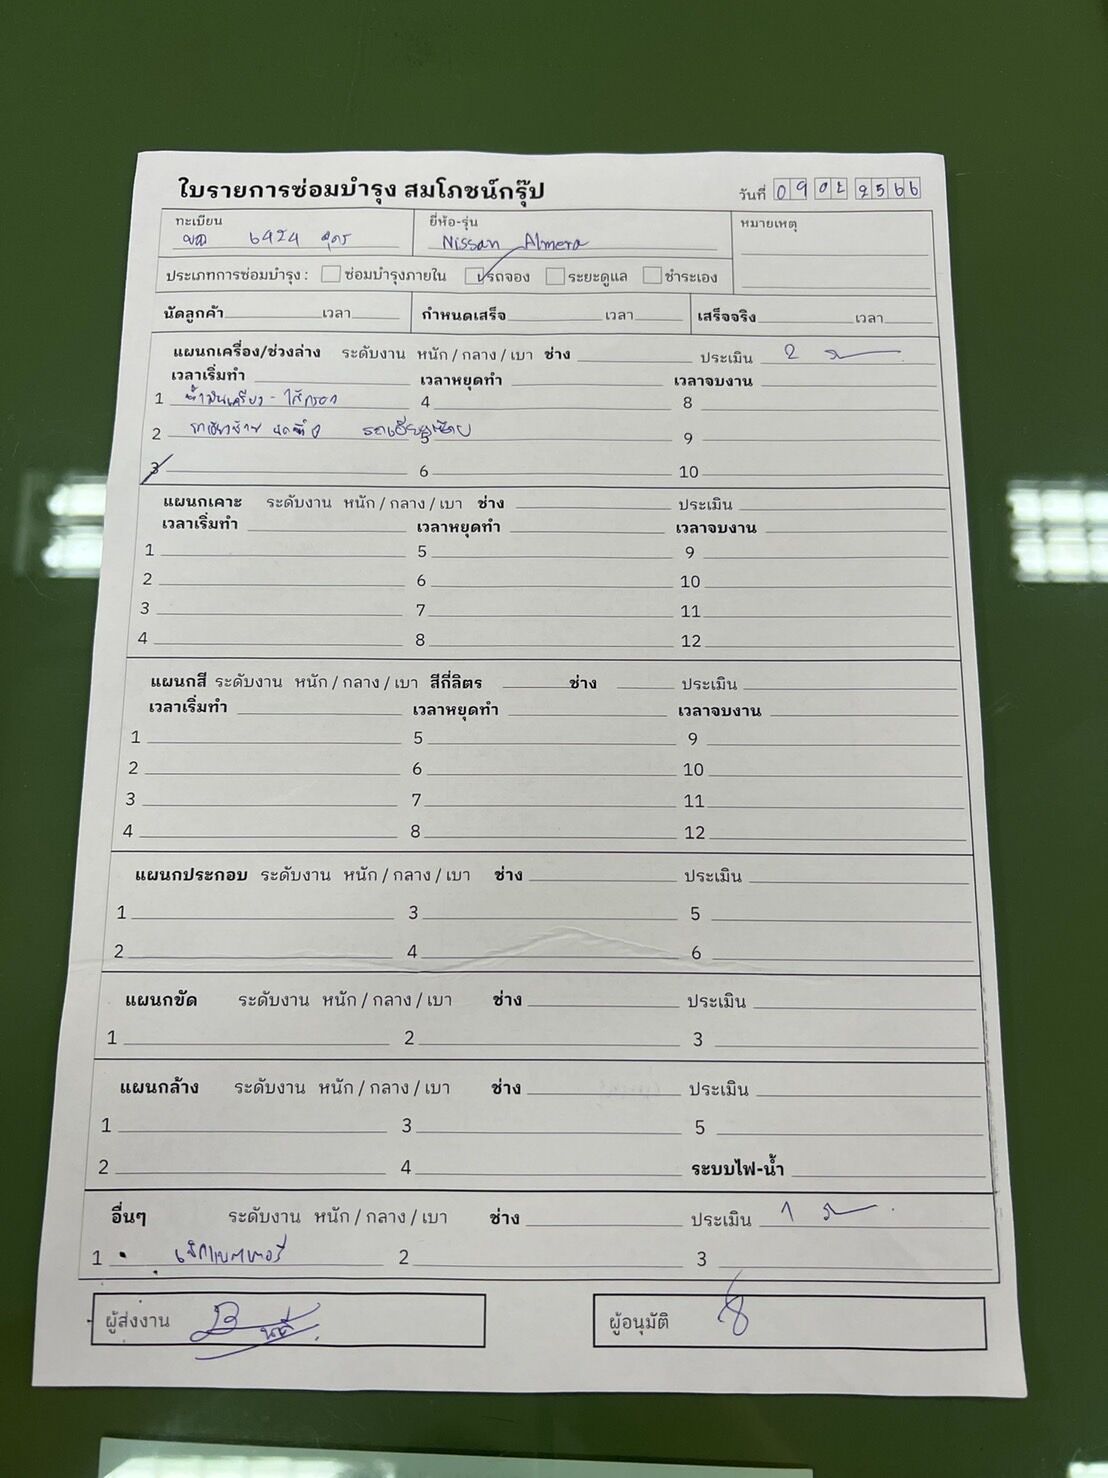 ใบรายการซ่อมบำรุง สมโภชน์กรุ๊ป
วันที่ 09 02 2566
ทะเบียน
6424 อุดร
ยี่ห้อ-รุ่น
Nissan Almera
หมายเหตุ
ประเภทการซ่อมบำรุง : ซ่อมบำรุงภายใน รถจอง ระยะดูแล ชำระเอง
นัดลูกค้า เวลา กำหนดเสร็จ เวลา เสร็จจริง เวลา
แผนกเครื่อง/ช่วงล่าง ระดับงาน หนัก / กลาง / เบา ช่าง ประเมิน 2
เวลาเริ่มทำ เวลาหยุดทำ เวลาจบงาน
1 น้ำมันเครื่อง - ไส้กรอง 4 8
2 5 9
3 6 10
แผนกเคาะ ระดับงาน หนัก / กลาง / เบา ช่าง ประเมิน
เวลาเริ่มทำ เวลาหยุดทำ เวลาจบงาน
1 5 9
2 6 10
3 7 11
4 8 12
แผนกสี ระดับงาน หนัก / กลาง / เบา สีกี่ลิตร ช่าง ประเมิน
เวลาเริ่มทำ เวลาหยุดทำ เวลาจบงาน
1 5 9
2 6 10
3 7 11
4 8 12
แผนกประกอบ ระดับงาน หนัก / กลาง / เบา ช่าง ประเมิน
1 3 5
2 4 6
แผนกขัด ระดับงาน หนัก / กลาง / เบา ช่าง ประเมิน
1 2 3
แผนกล้าง ระดับงาน หนัก / กลาง / เบา ช่าง ประเมิน
1 3 5
2 4 ระบบไฟ-น้ำ
อื่นๆ ระดับงาน หนัก / กลาง / เบา ช่าง ประเมิน 1
1 เช็กแบตเตอรี่ 2 3
ผู้ส่งงาน
ผู้อนุมัติ